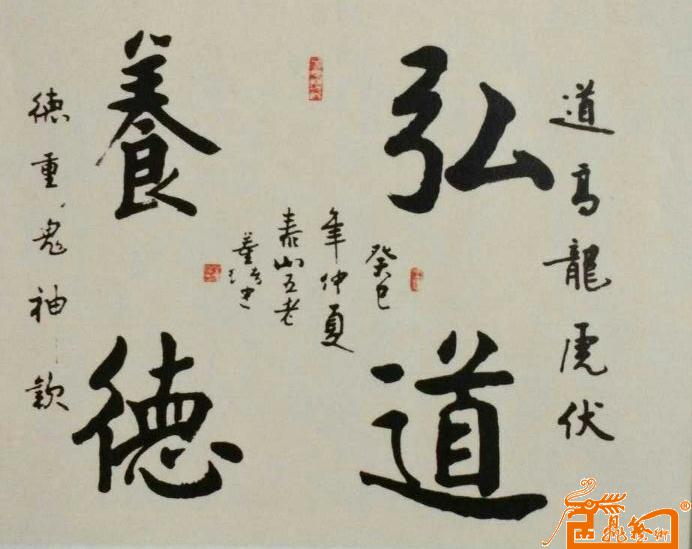 道高龍虎伏
弘道
養德
癸巳
年仲夏
泰山五老
德重鬼神欽